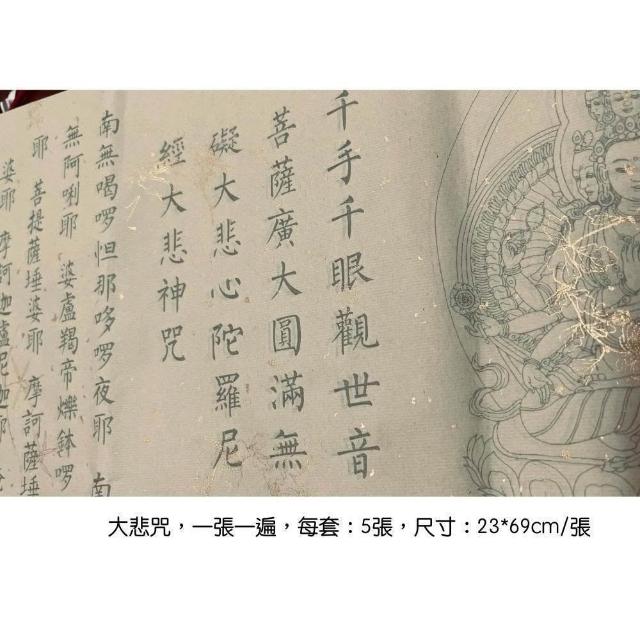 千手千眼觀世音
菩薩廣大圓滿無
礙大悲心陀羅尼
經大悲神咒
南無喝囉怛那哆囉夜耶 南
無阿唎耶 婆盧羯帝爍鉢囉
耶 菩提薩埵婆耶 摩訶薩埵
婆耶 摩訶迦盧尼迦耶
大悲咒，一張一遍，每套：5張，尺寸：23*69cm/張